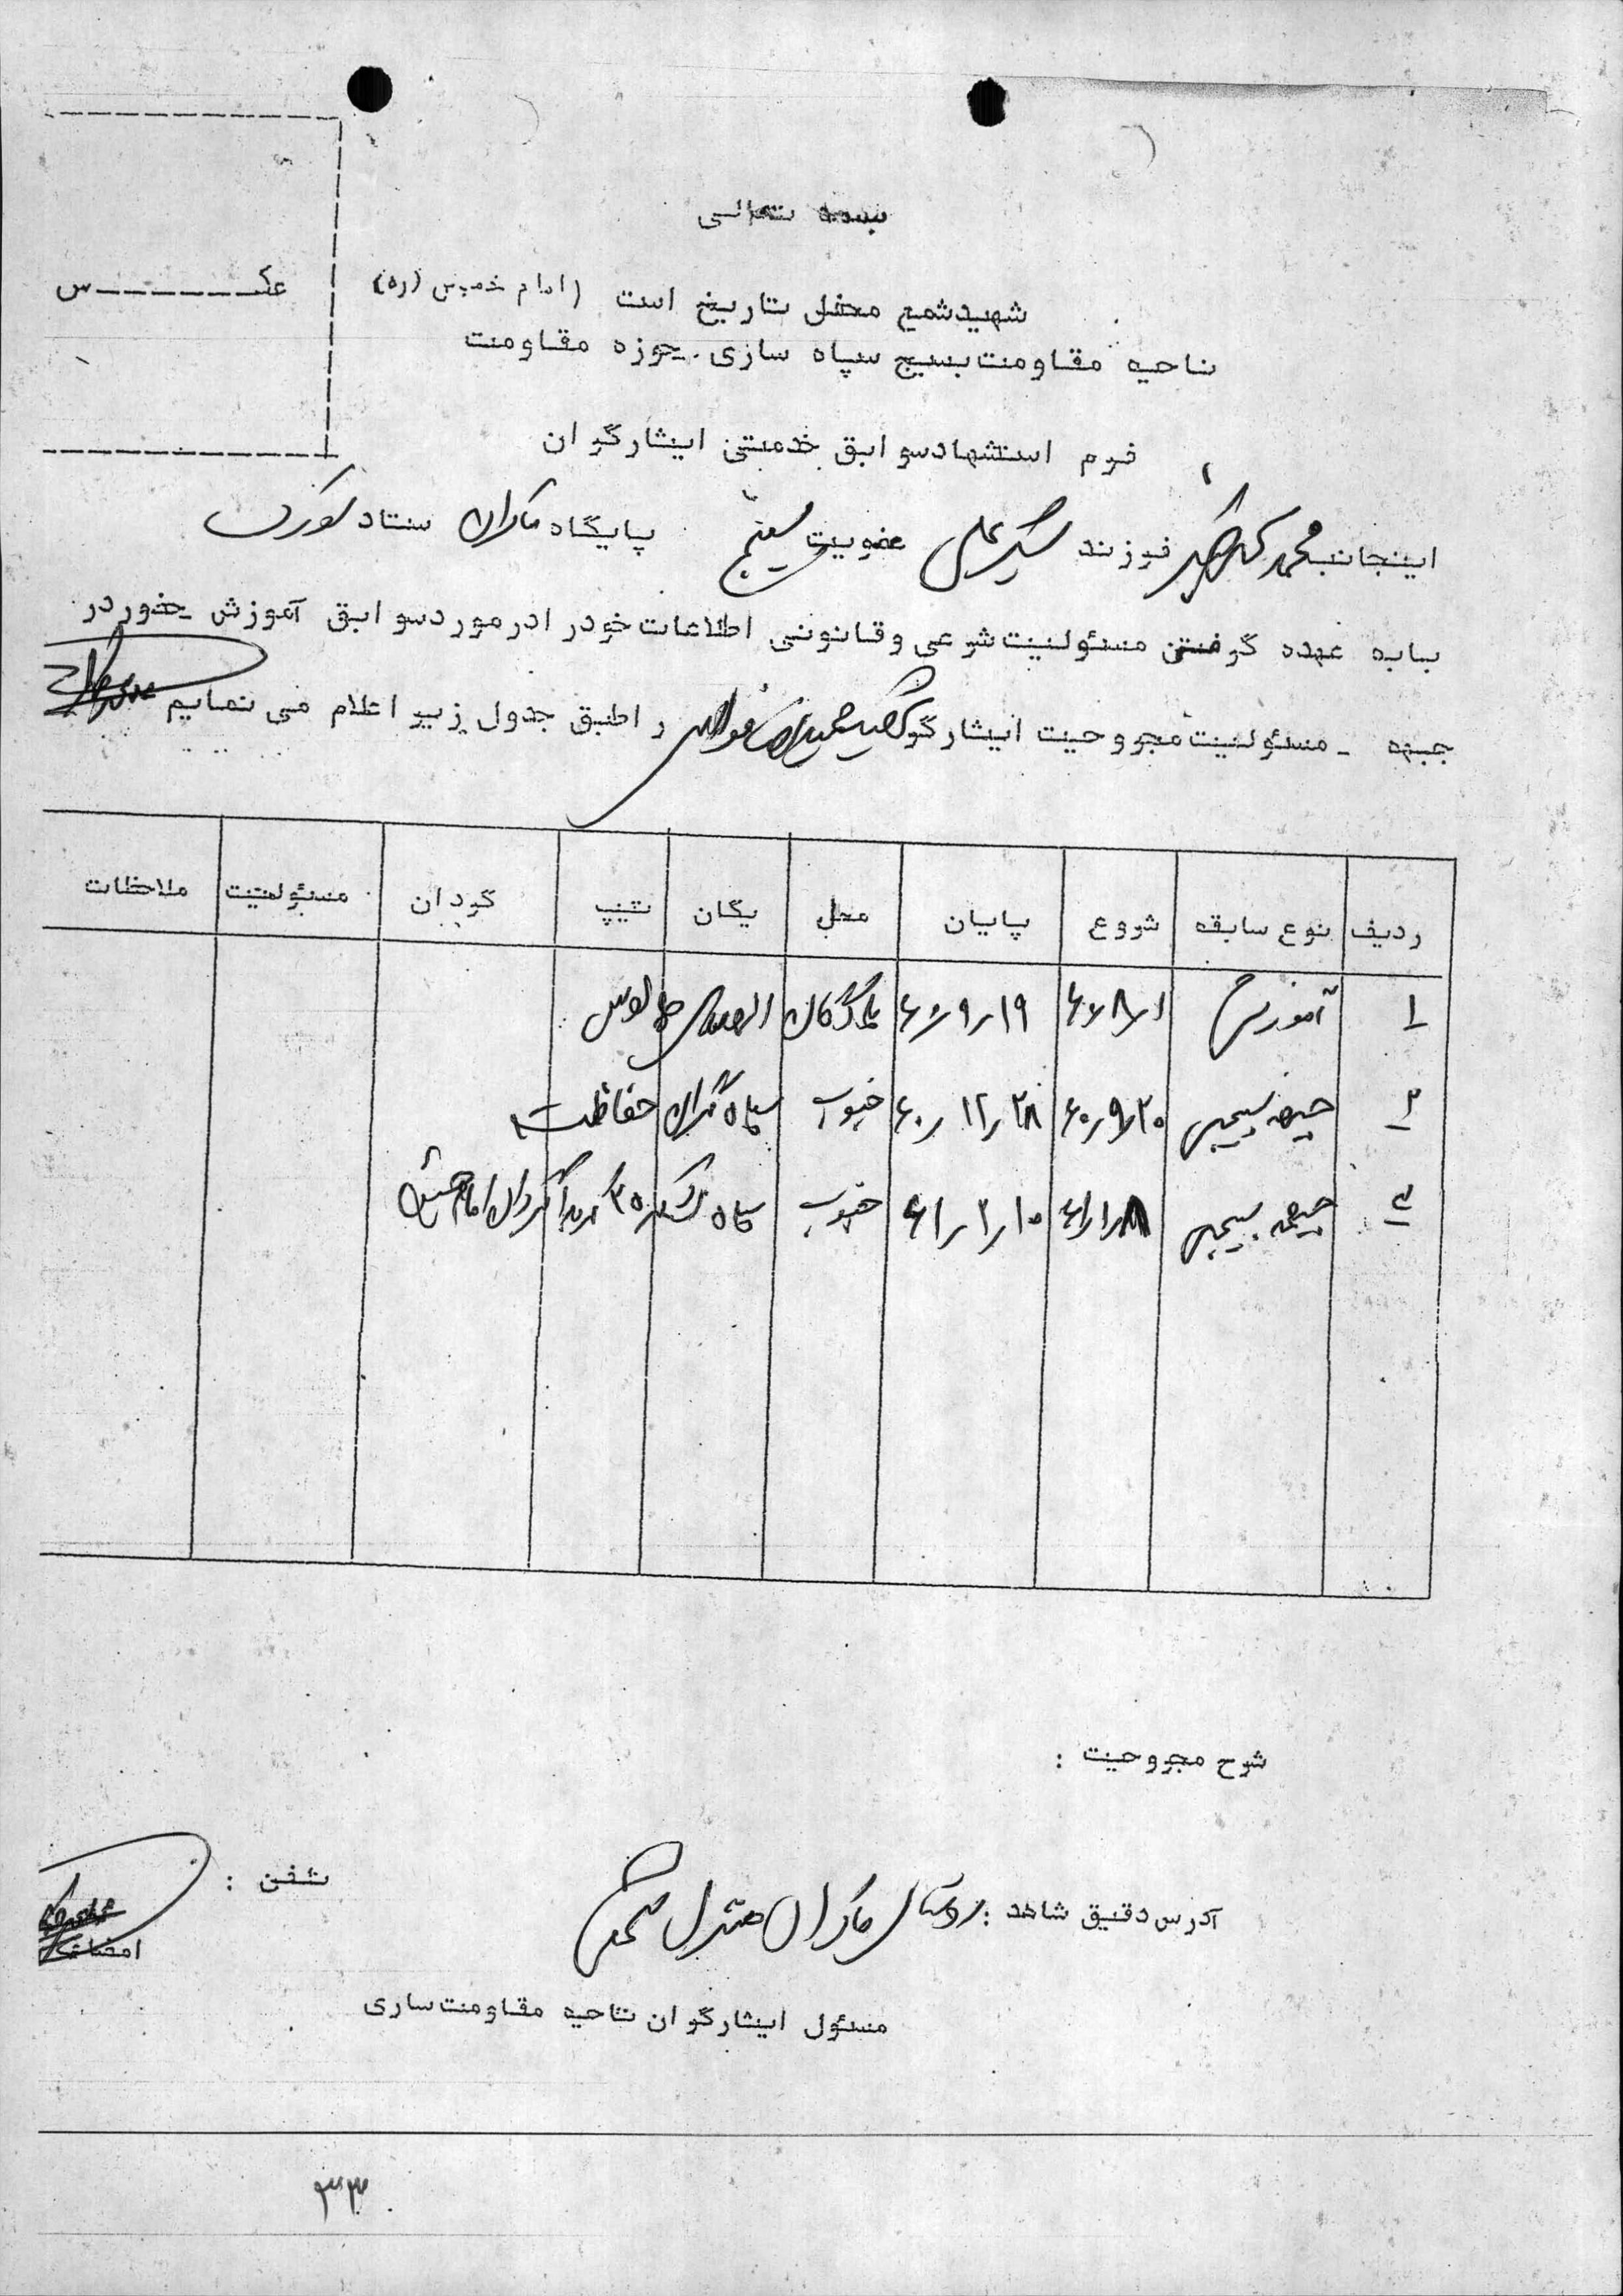 بسمه تعالی
عکـــــــس
شهید شمع محفل تاریخ است (امام خمینی (ره)
ناحیه مقاومت بسیج سپاه ساری. حوزه مقاومت
فرم استشهاد سوابق خدمتی ایثارگران
اینجانب محمد فرزند علی عضویت بسیج پایگاه ماکران ستاد
با به عهده گرفتن مسئولیت شرعی و قانونی اطلاعات خود را در مورد سوابق آموزش حضور در
جبهه - مسئولیت مجروحیت ایثارگر شهید را طبق جدول زیر اعلام می نمایم
ردیف نوع سابقه شروع پایان محل یگان تیپ گردان مسئولیت ملاحظات
۱ آموزش ۶۰/۸/۱ ۶۰/۹/۱۹ چالوس
۲ جبهه بسیجی ۶۰/۹/۲۰ ۶۰/۱۲/۲۸ جنوب سپاه حفاظت
۳ جبهه بسیجی ۶۱/۱/۸ ۶۱/۲/۱۰ جنوب سپاه لشکر ۲۵ کربلا گردان امام حسین
شرح مجروحیت :
آدرس دقیق شاهد : روستای ماکران منزل شخصی
تلفن :
امضاء
مسئول ایثارگران ناحیه مقاومت ساری
۳۳